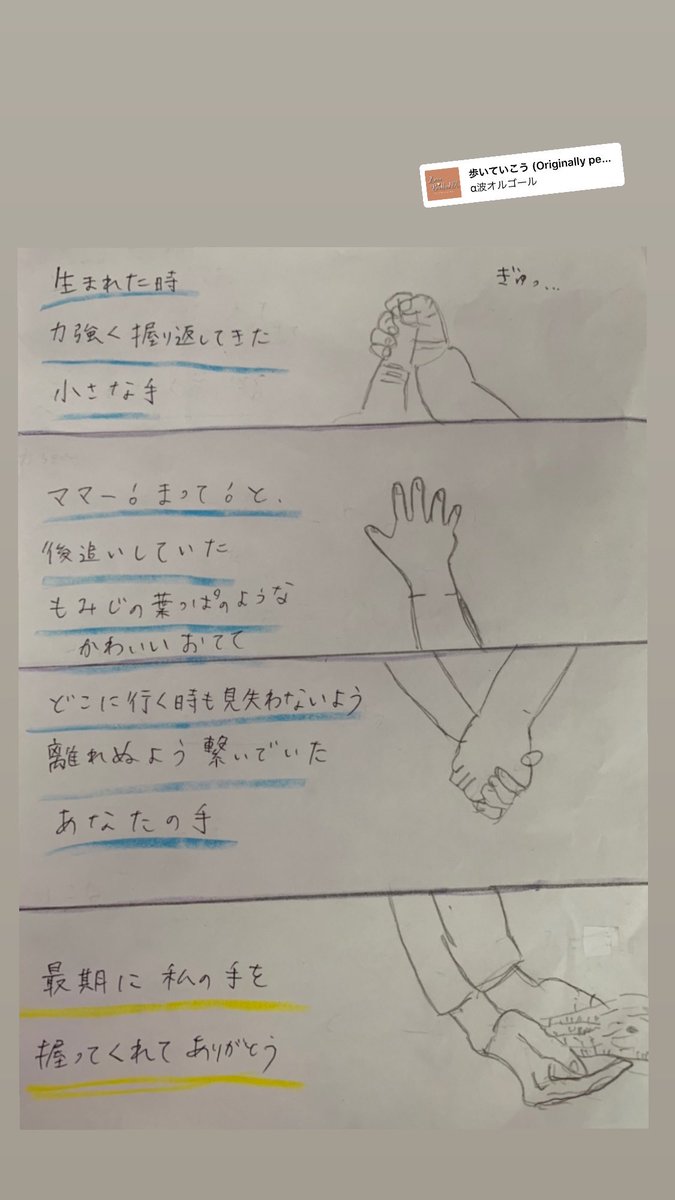 歩いていこう (Originally pe...
α波オルゴール
生まれた時
ぎゅっ...
力強く握り返してきた
小さな手
ママー！まって！と、
後追いしていた
もみじの葉っぱのような
かわいいおてて
どこに行く時も見失わないよう
離れぬよう繋いでいた
あなたの手
最期に私の手を
握ってくれてありがとう